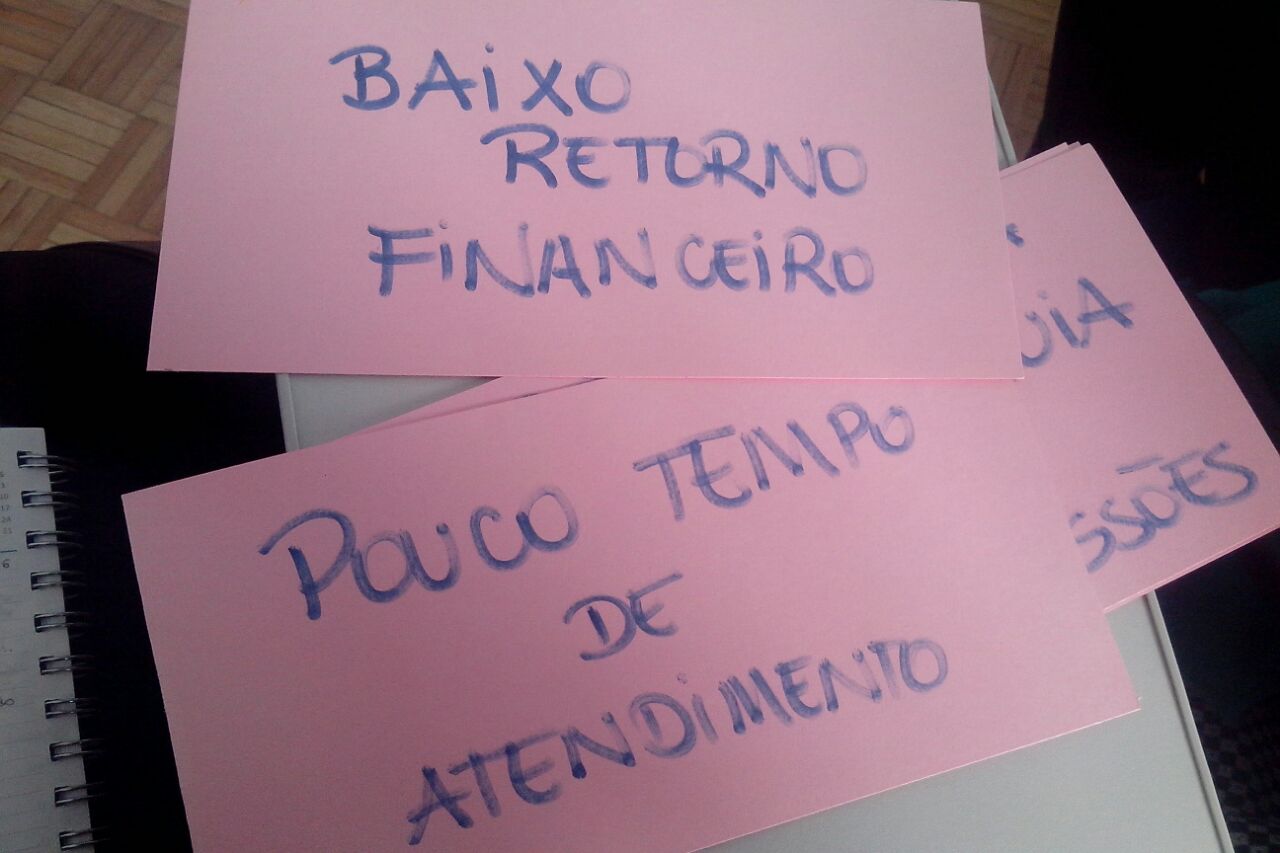 BAiXO
RETORNO
FiNANCEiRO
POUCO TEMPO
DE
ATENDiMENTO